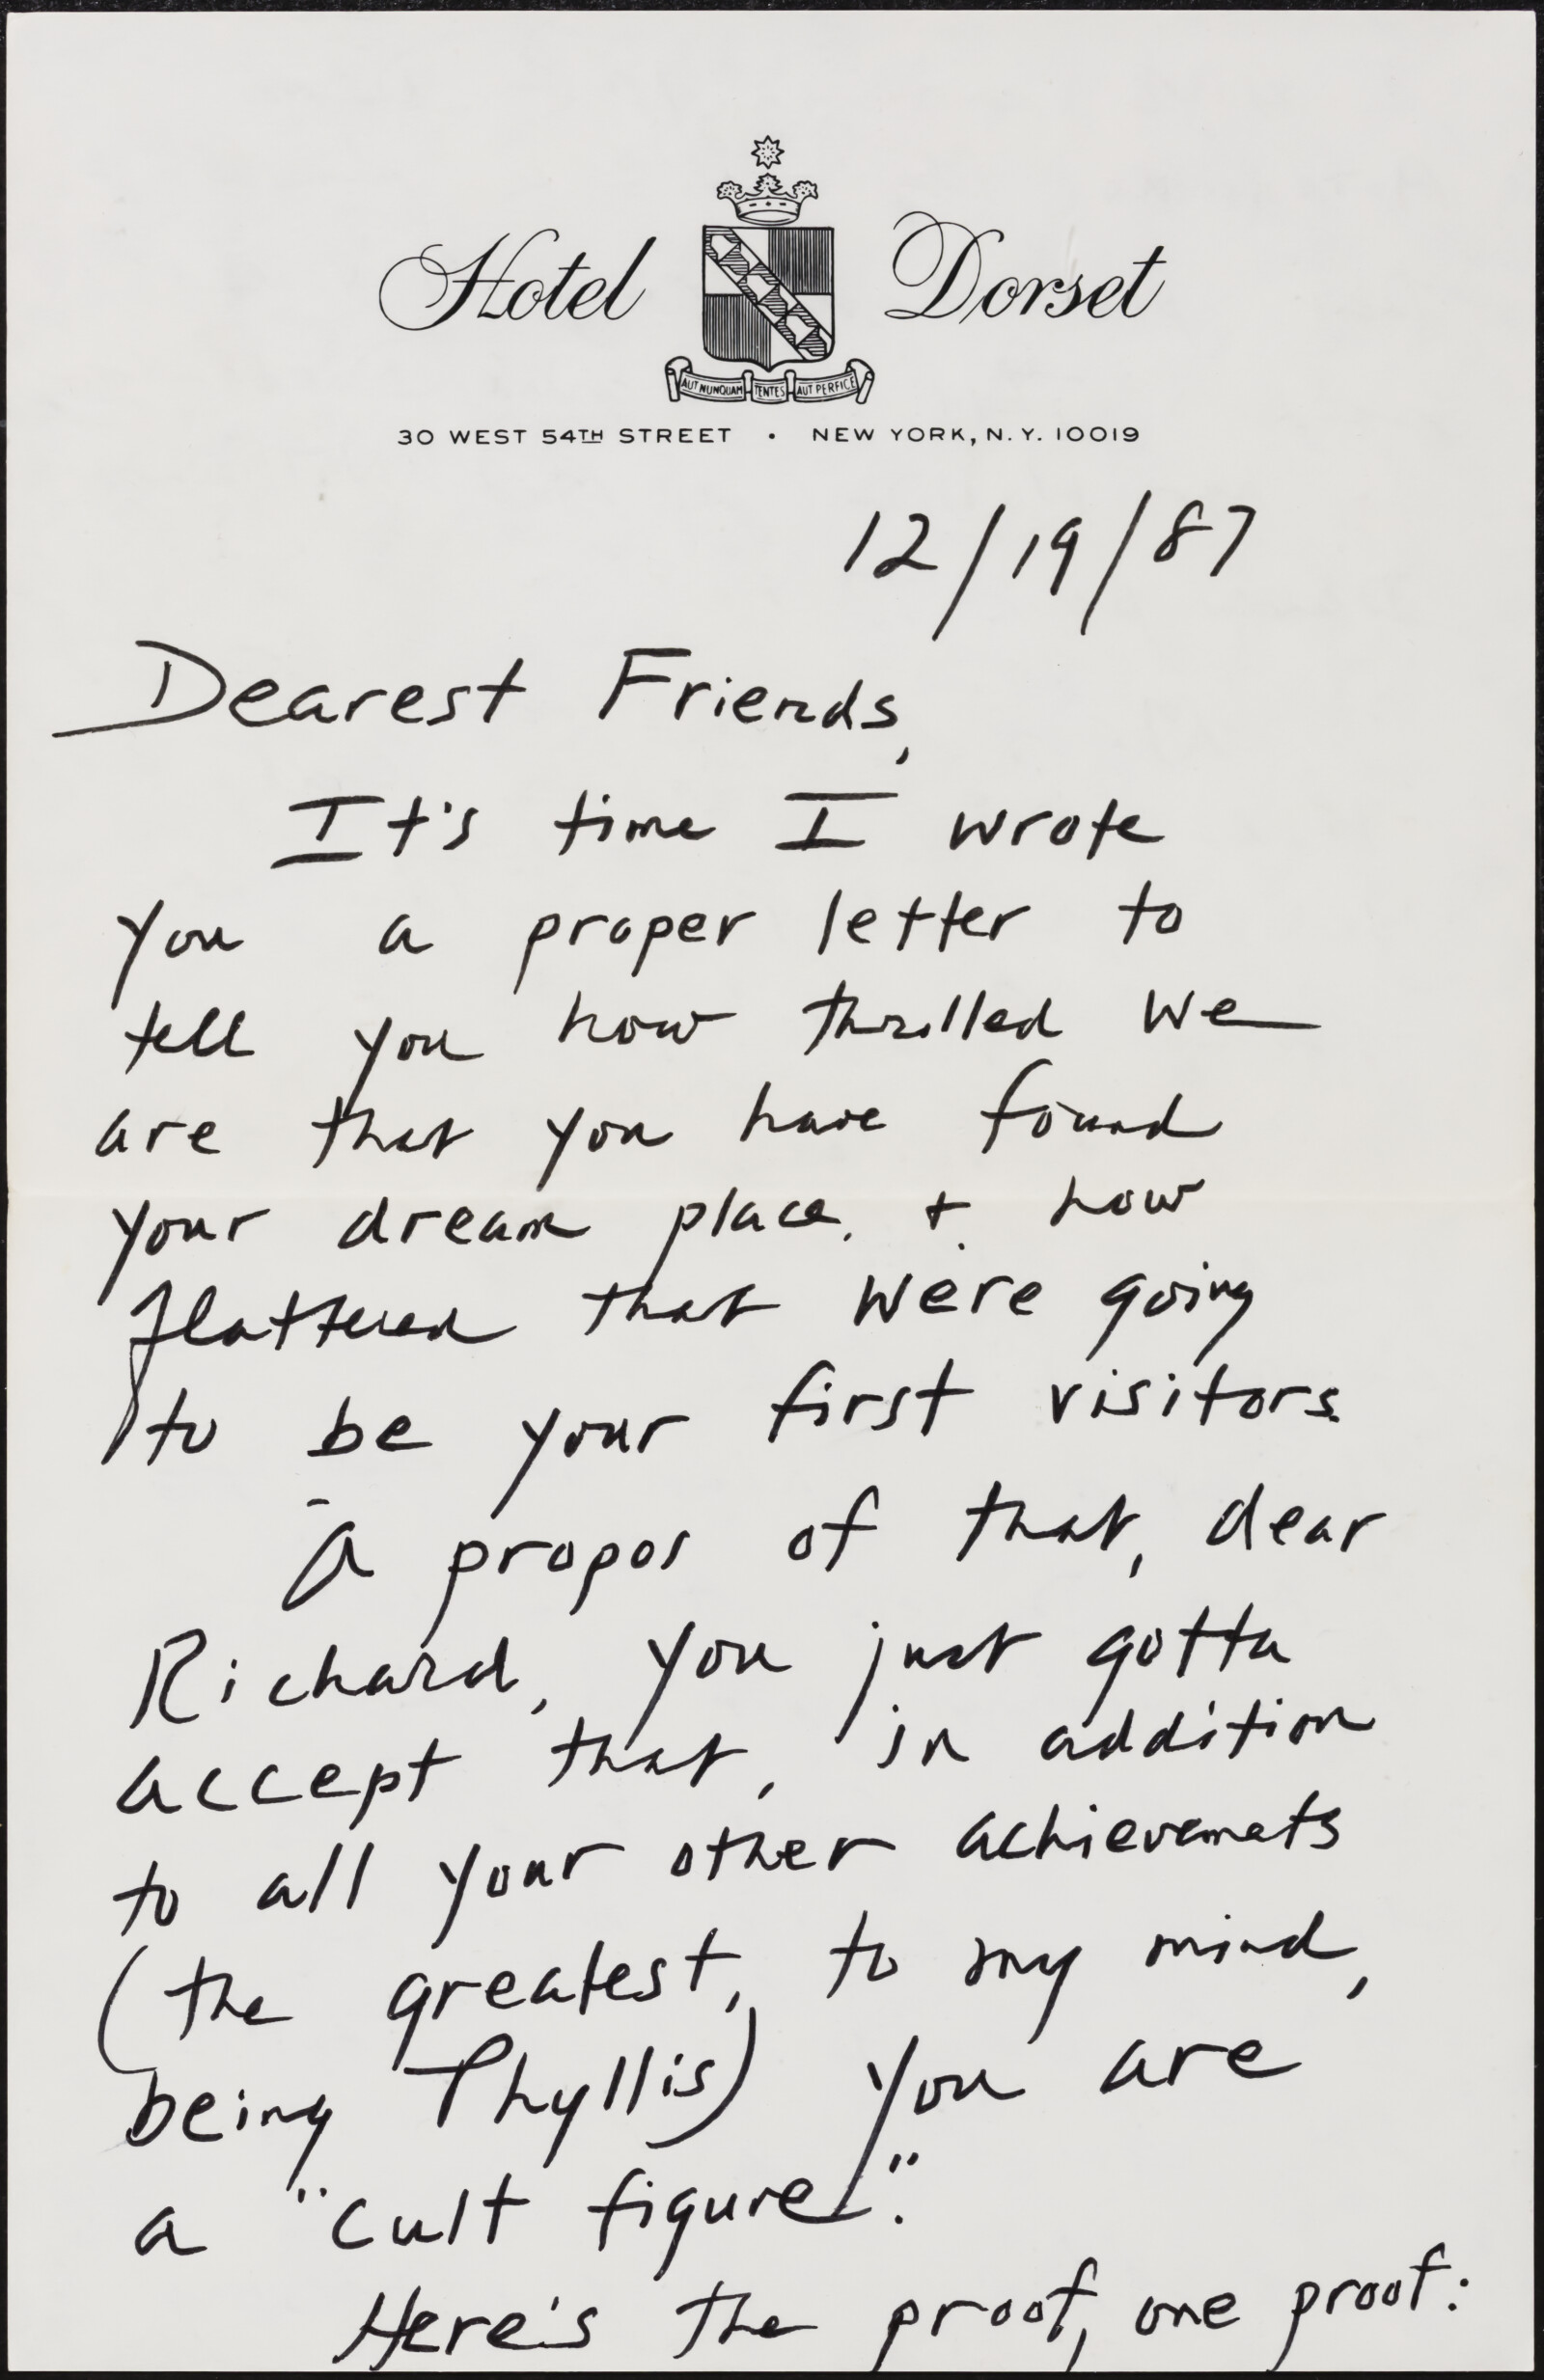 Hotel Dorset
AUT NUNQUAM TENTES AUT PERFICE
30 WEST 54TH STREET • NEW YORK, N.Y. 10019
12/19/87
Dearest Friends,
It's time I wrote
you a proper letter to
tell you how thrilled we
are that you have found
your dream place, + how
flattered that we're going
to be your first visitors.
A propos of that, dear
Richard, you just gotta
accept that, in addition
to all your other achievemets
(the greatest, to my mind,
being Phyllis) you are
a "cult figure".
Here's the proof, one proof: